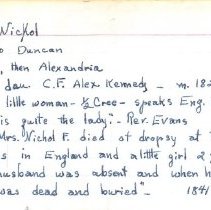 Nichol
o Duncan
, then Alexandria
dau. C.F. Alex Kennedy - m. 182
little woman - ½ Cree - speaks Eng.
is quite the lady". - Rev. Evans
Mrs. Nichol F. died of dropsy at
s in England and a little girl 2 y
husband was absent and when h
was dead and buried". 1841